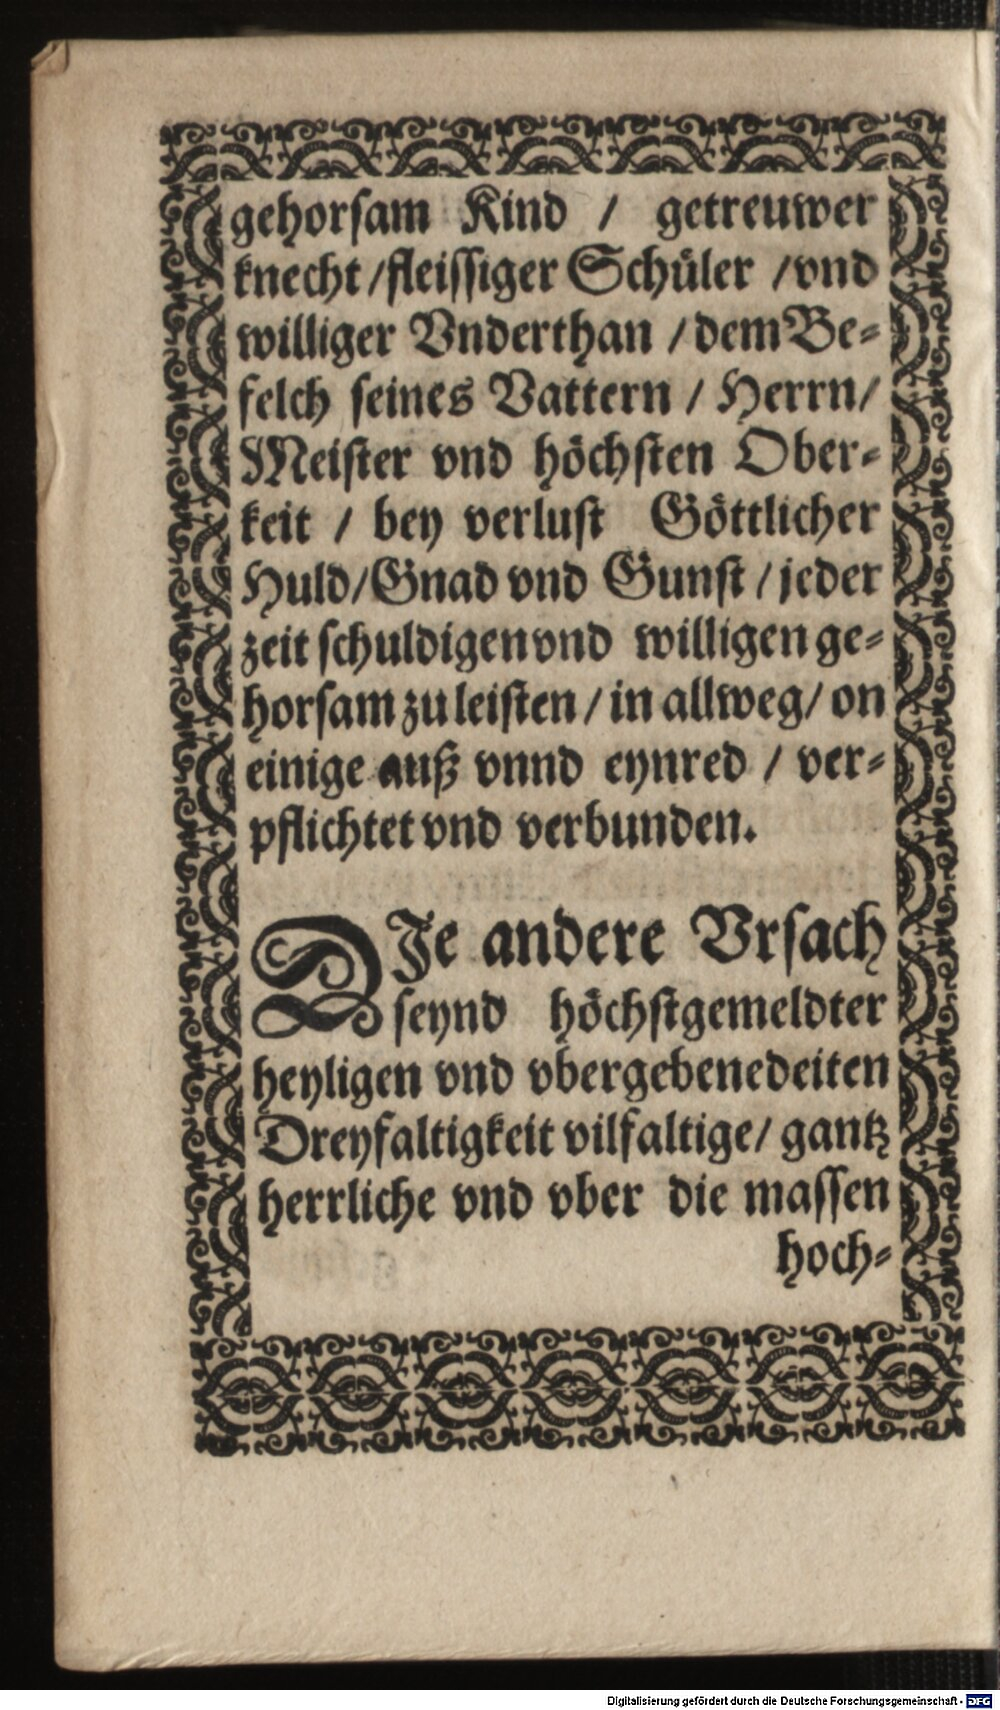 gehorsam Kind / getreuwer
knecht / fleissiger Schüler / vnd
williger Vnderthan / dem Be-
felch seines Vattern / Herrn /
Meister vnd höchsten Ober-
keit / bey verlust Göttlicher
Huld / Gnad vnd Gunst / jeder
zeit schuldigen vnd willigen ge-
horsam zu leisten / in allweg / on
einige auß vnnd eynred / ver-
pflichtet vnd verbunden.
DIe andere Vrsach
seynd höchstgemeldter
heyligen vnd vbergebenedeiten
Dreyfaltigkeit vilfaltige / gantz
herrliche vnd vber die massen
hoch-
Digitalisierung gefördert durch die Deutsche Forschungsgemeinschaft - DFG